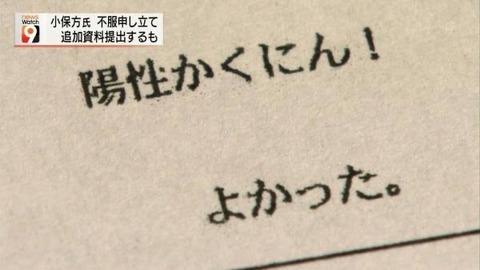 news
Watch
9
小保方氏 不服申し立て
追加資料提出するも
陽性かくにん!
よかった。